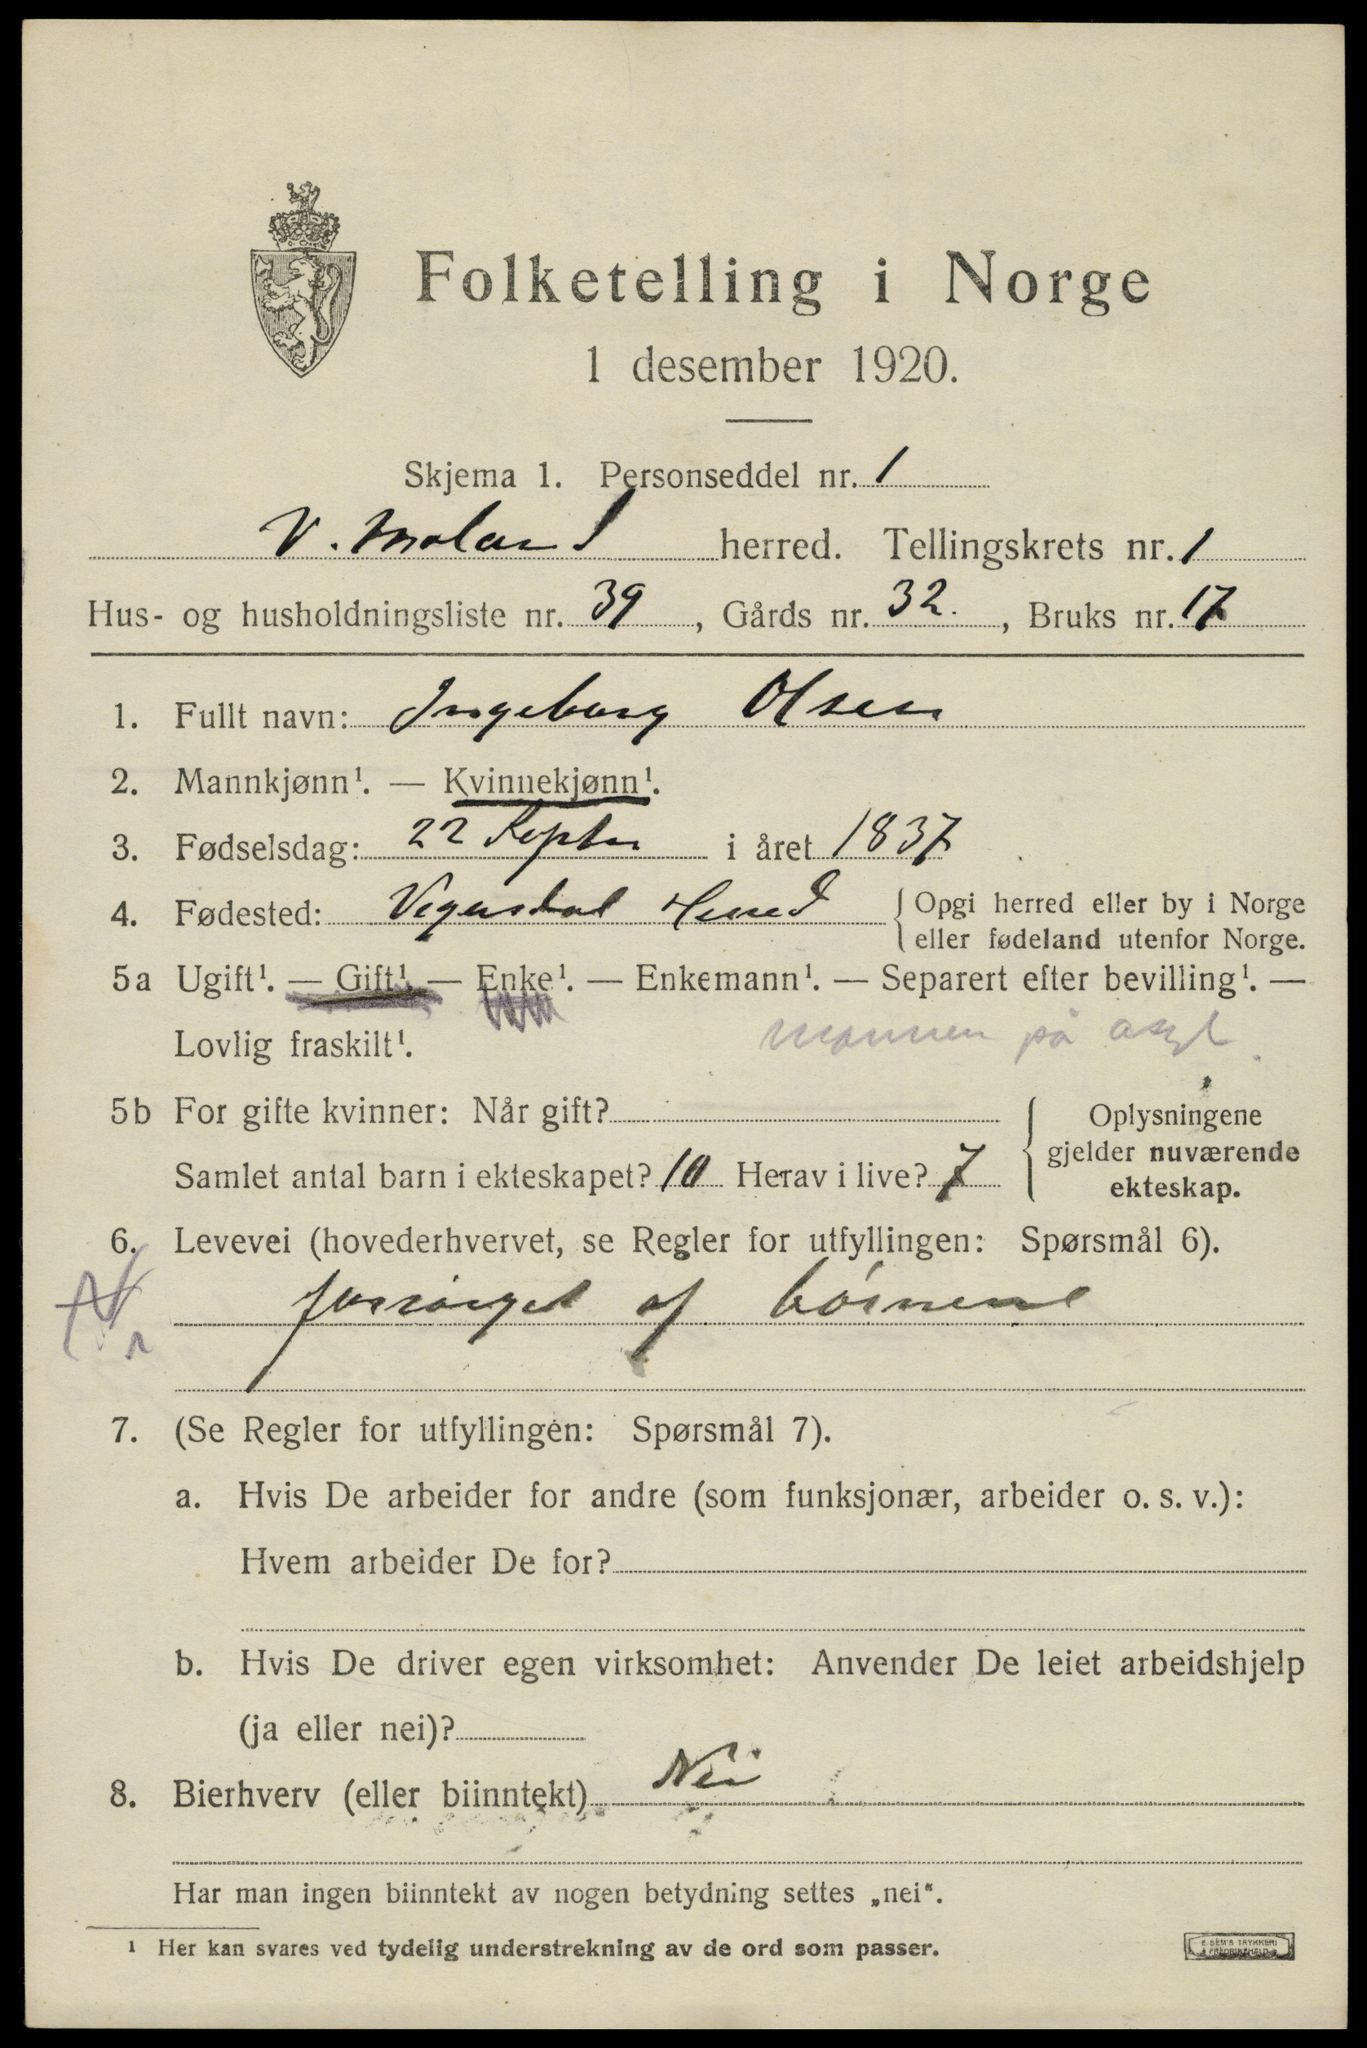 Folketelling i Norge
1 desember 1920.
Skjema 1. Personseddel nr. 1
V. Moland herred. Tellingskrets nr. 1
Hus- og husholdningsliste nr. 39, Gårds nr. 32., Bruks nr. 17
1. Fullt navn: Ingeborg Olsen
2. Mannkjønn¹. — Kvinnekjønn¹.
3. Fødselsdag: 22 Septbr i året 1837
4. Fødested: Vegusdal Herred { Opgi herred eller by i Norge
eller fødeland utenfor Norge.
5a Ugift¹. — Gift¹. — Enke¹. — Enkemann¹. — Separert efter bevilling¹. —
Lovlig fraskilt¹. mannen på asyl.
5b For gifte kvinner: Når gift?
Samlet antal barn i ekteskapet? 10 Herav i live? 7
{ Oplysningene
gjelder nuværende
ekteskap.
6. Levevei (hovederhvervet, se Regler for utfyllingen: Spørsmål 6).
forsørget af børnene
7. (Se Regler for utfyllingen: Spørsmål 7).
a. Hvis De arbeider for andre (som funksjonær, arbeider o. s. v.):
Hvem arbeider De for?
b. Hvis De driver egen virksomhet: Anvender De leiet arbeidshjelp
(ja eller nei)?
8. Bierhverv (eller biinntekt) Nei
Har man ingen biinntekt av nogen betydning settes „nei“.
¹ Her kan svares ved tydelig understrekning av de ord som passer.
E. SEM'S TRYKKERI
FREDRIKSHALD